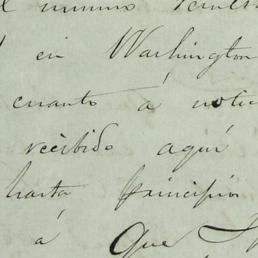 mismo
en Washington
cuanto á
recibido aquí
hasta principios
á Que